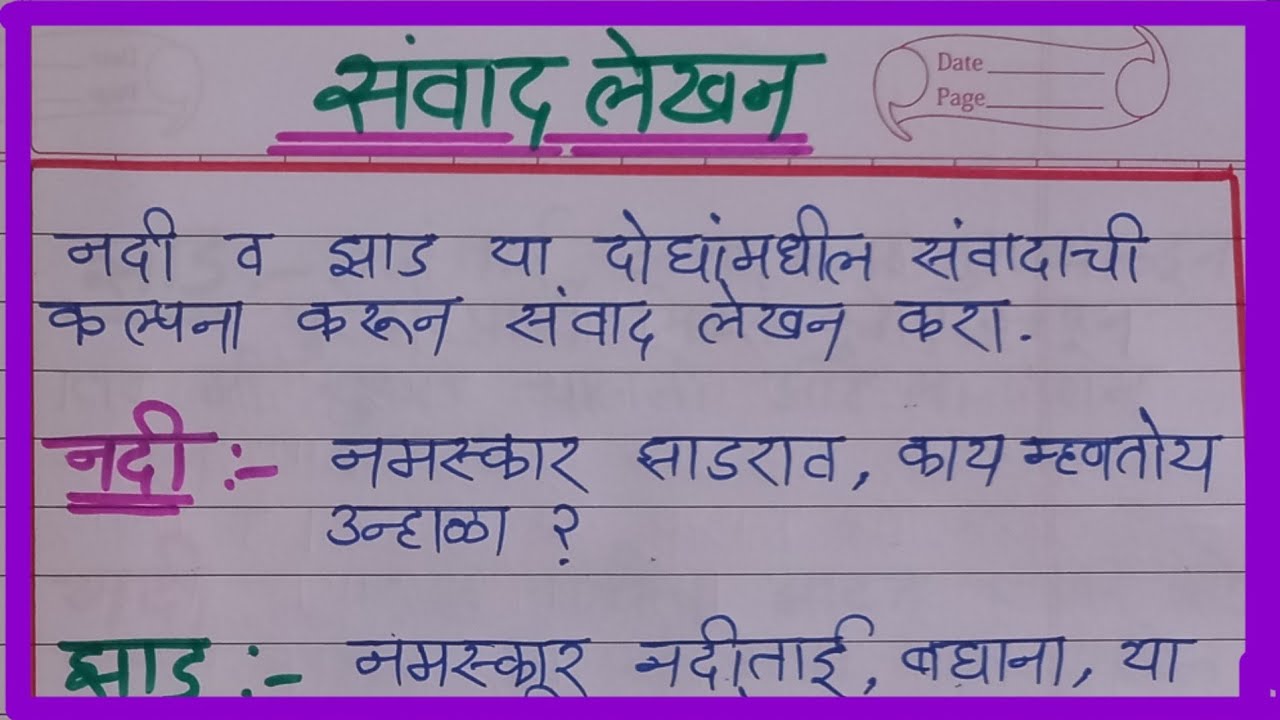 संवाद लेखन
Date
Page
नदी व झाड या दोघांमधील संवादाची
कल्पना करून संवाद लेखन करा.
नदी :- नमस्कार झाडराव, काय म्हणतोय
उन्हाळा ?
झाड :- नमस्कार नदीताई, बघाना, या